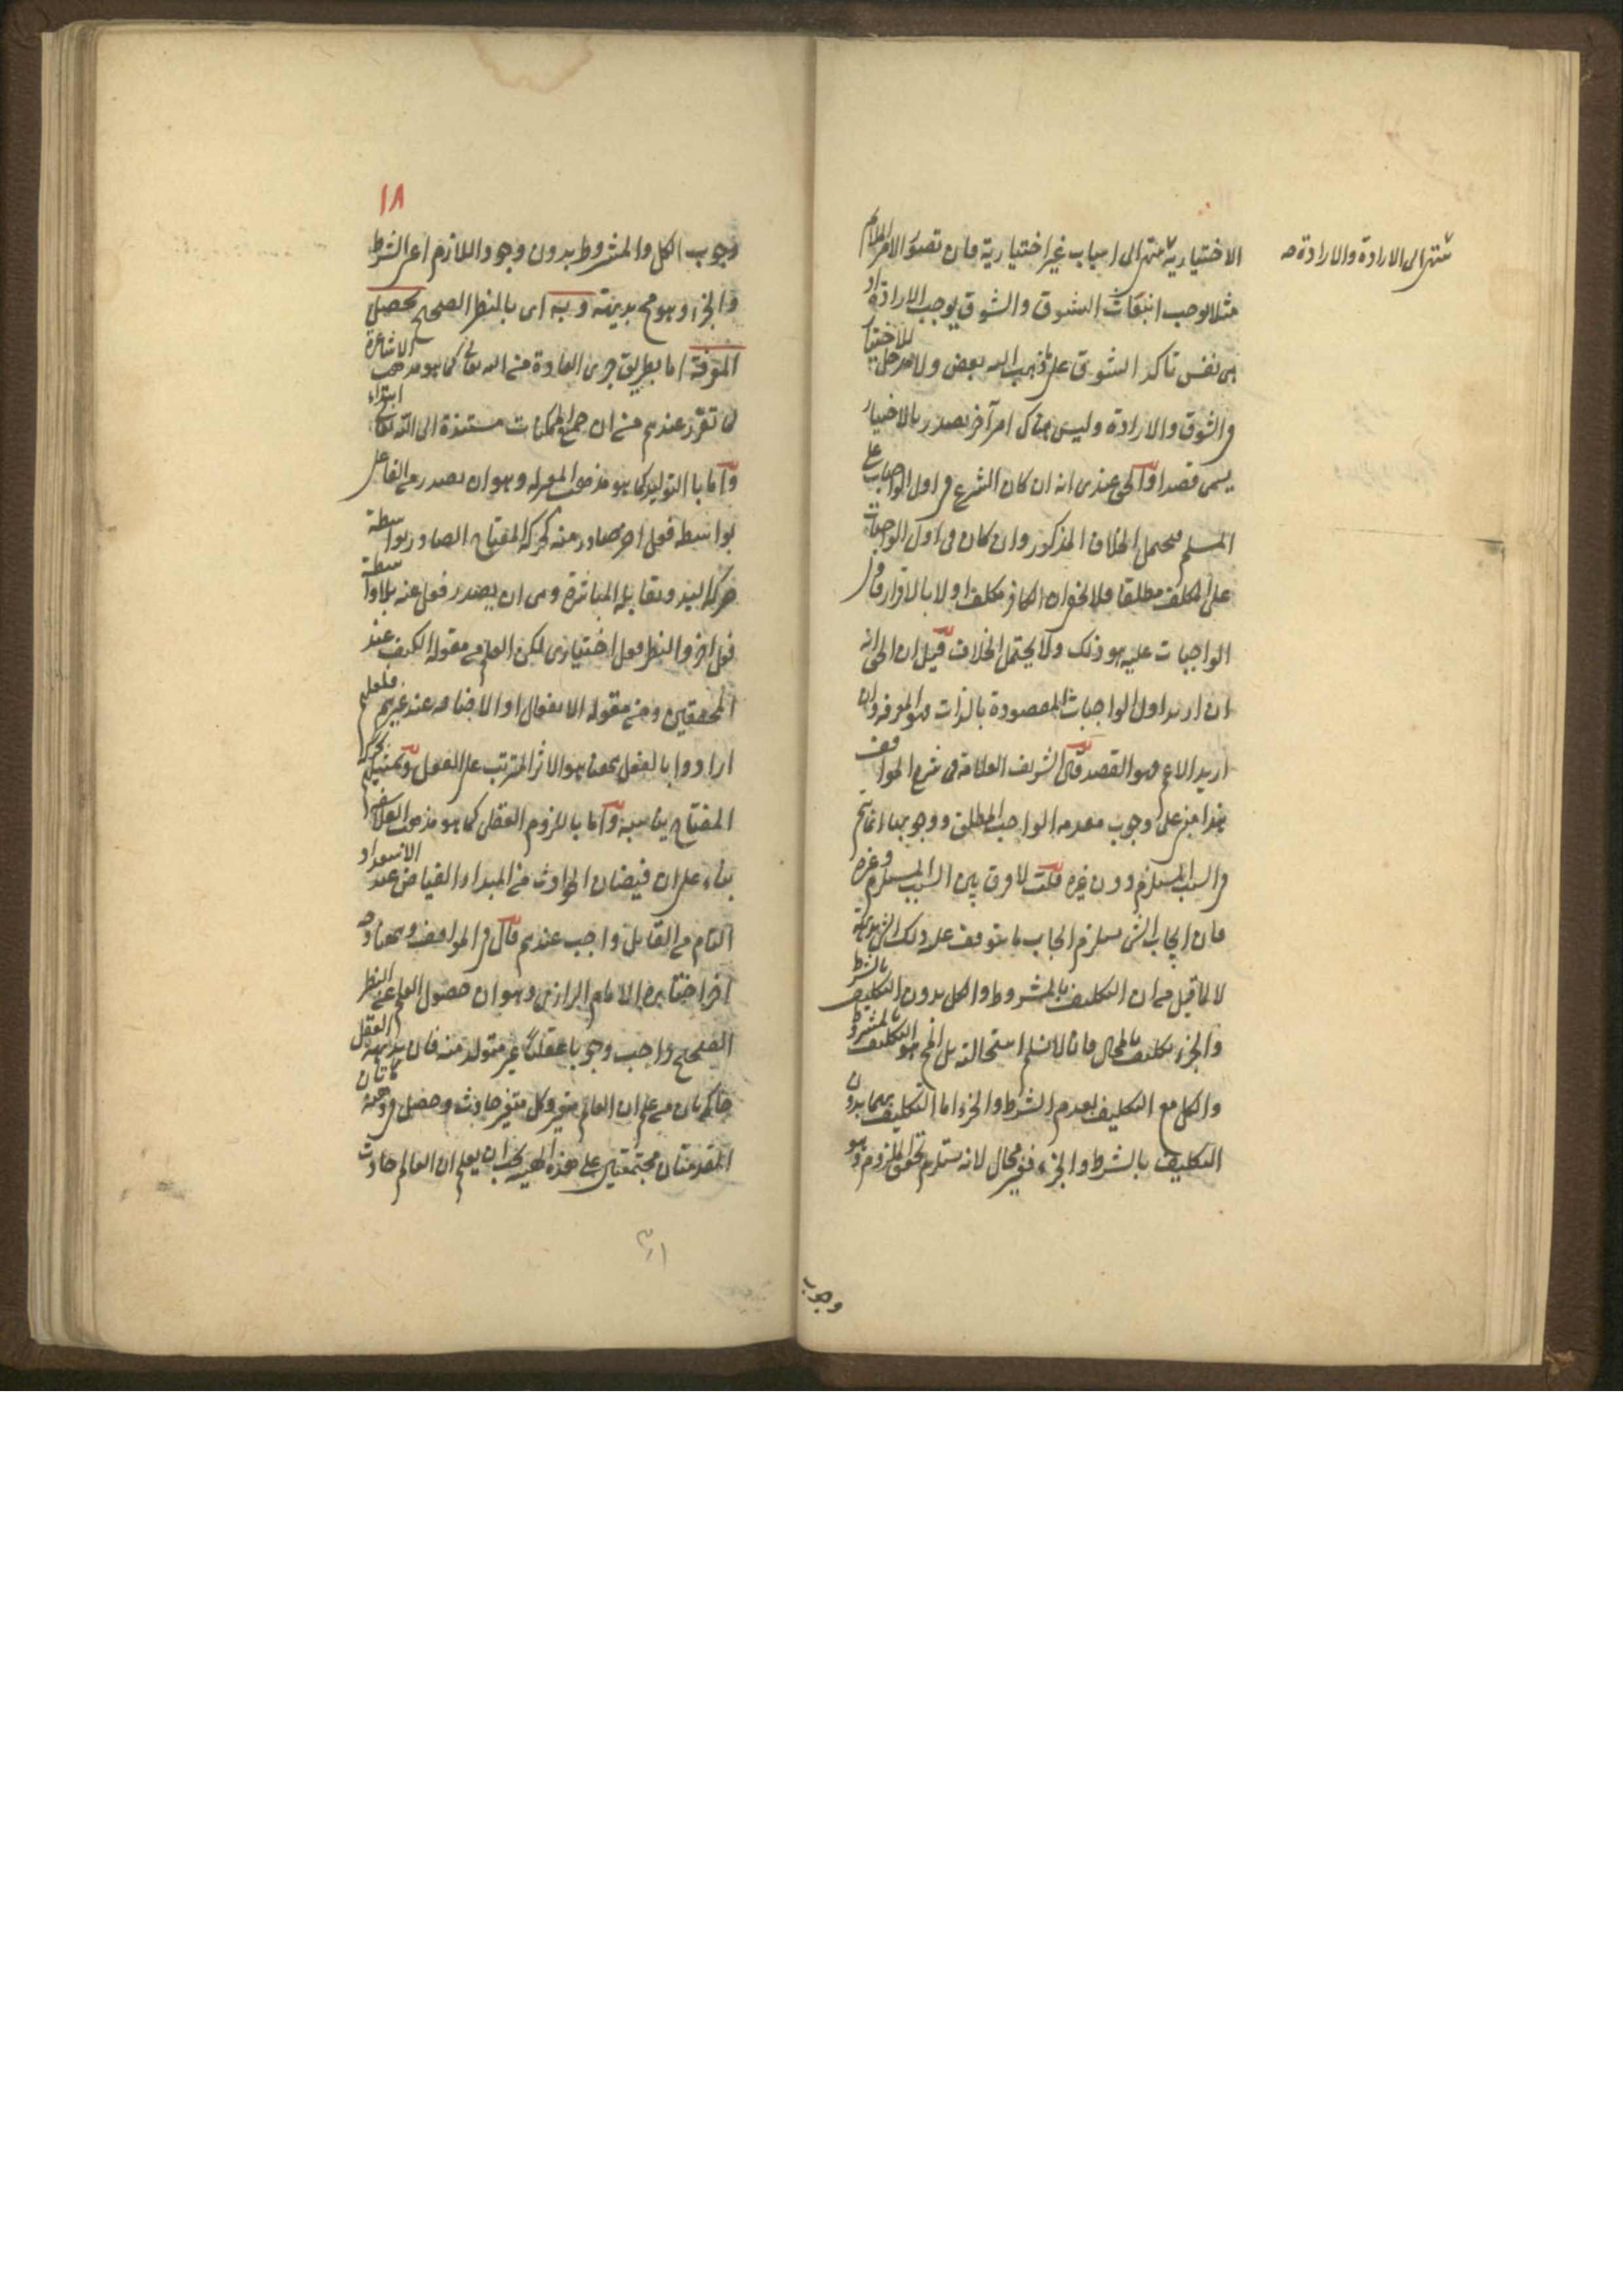 تنتهى الى الارادة والارادة صح
الاختيارية تنتهى الى اسباب غير اختيارية فان تصور الامر الملائم
مثلا يوجب انبعاث الشوق والشوق يوجب الارادة او
هى نفس تاكد الشوق على ما ذهب اليه بعض ولا مدخل للاختيار
فى الشوق والارادة وليس هناك امر آخر يصدر بالاختيار
يسمى قصدا والحق عندى انه ان كان النزاع فى اول الواجبات على
المسلم فيحتمل الخلاف المذكور وان كان فى اول الواجبات
على المكلف مطلقا فلا يخفى ان الكافر مكلف اولا بالاقرار فاول
الواجبات عليه هو ذلك ولا يحتمل الخلاف قيل ان الحق انه
ان اريد اول الواجبات المقصودة بالذات فهو المعرفة وان
اريد الاعم فهو القصد قال الشريف العلامة فى شرح المواقف
هذا مبنى على وجوب مقدمة الواجب المطلق ووجوبها انما يتم
فى السبب المستلزم دون غيره قلت لا فرق بين السبب المستلزم وغيره
فان ايجاب الشئ يستلزم ايجاب ما يتوقف عليه ذلك الشئ بديهة
لا لما قيل من ان التكليف بالمشروط والكل بدون التكليف بالشرط
والجزء تكليف بالمحال فانا لا نسلم استحالته بل المح هو التكليف بالمشروط
والكل مع التكليف بعدم الشرط والجزء اما التكليف بهما بدون
التكليف بالشرط والجزء فغير محال لانه يستلزم تحقق الملزوم وهو
وجوب
١٨
وجوب الكل والمشروط بدون وجود اللازم اعنى الشرط
والجزء وهو مح بديهة وبه اى بالنظر الصحيح يحصل
المعرفة اما بطريق جرى العادة من الله تعالى كما هو مذهب الاشاعرة
لما تقرر عندهم من ان جميع الممكنات مستندة الى الله تعالى ابتداء
واما بالتوليد كما هو مذهب المعتزلة وهو ان يصدر من الفاعل
بواسطة فعل اخر صادر منه كحركة المفتاح الصادر بواسطة
حركة اليد ويقابله المباشرة وهى ان يصدر فعل عنه بلا واسطة
فعل اخر والنظر فعل اختيارى لكن العلم من مقولة الكيف عند
المحققين ومن مقولة الانفعال او الاضافة عند غيرهم فلعلهم
ارادوا بالفعل ههنا هو الاثر المترتب على الفعل وتمثيلهم بحركة
المفتاح يناسبه واما باللزوم العقلى كما هو مذهب الفلاسفة
بناء على ان فيضان الحوادث من المبدا الفياض عند الاستعداد
التام من القابل واجب عندهم قال فى المواقف وههنا وجه
اخر اختاره الامام الرازى وهو ان حصول العلم عن النظر
الصحيح واجب وجوبا عقليا غير متولد منه فان بديهة العقل
حاكمة بان من علم ان العالم متغير وكل متغير حادث وحصل فى ذهنه هاتان
المقدمتان مجتمعتين على هذه الهيئة يجب ان يعلم ان العالم حادث